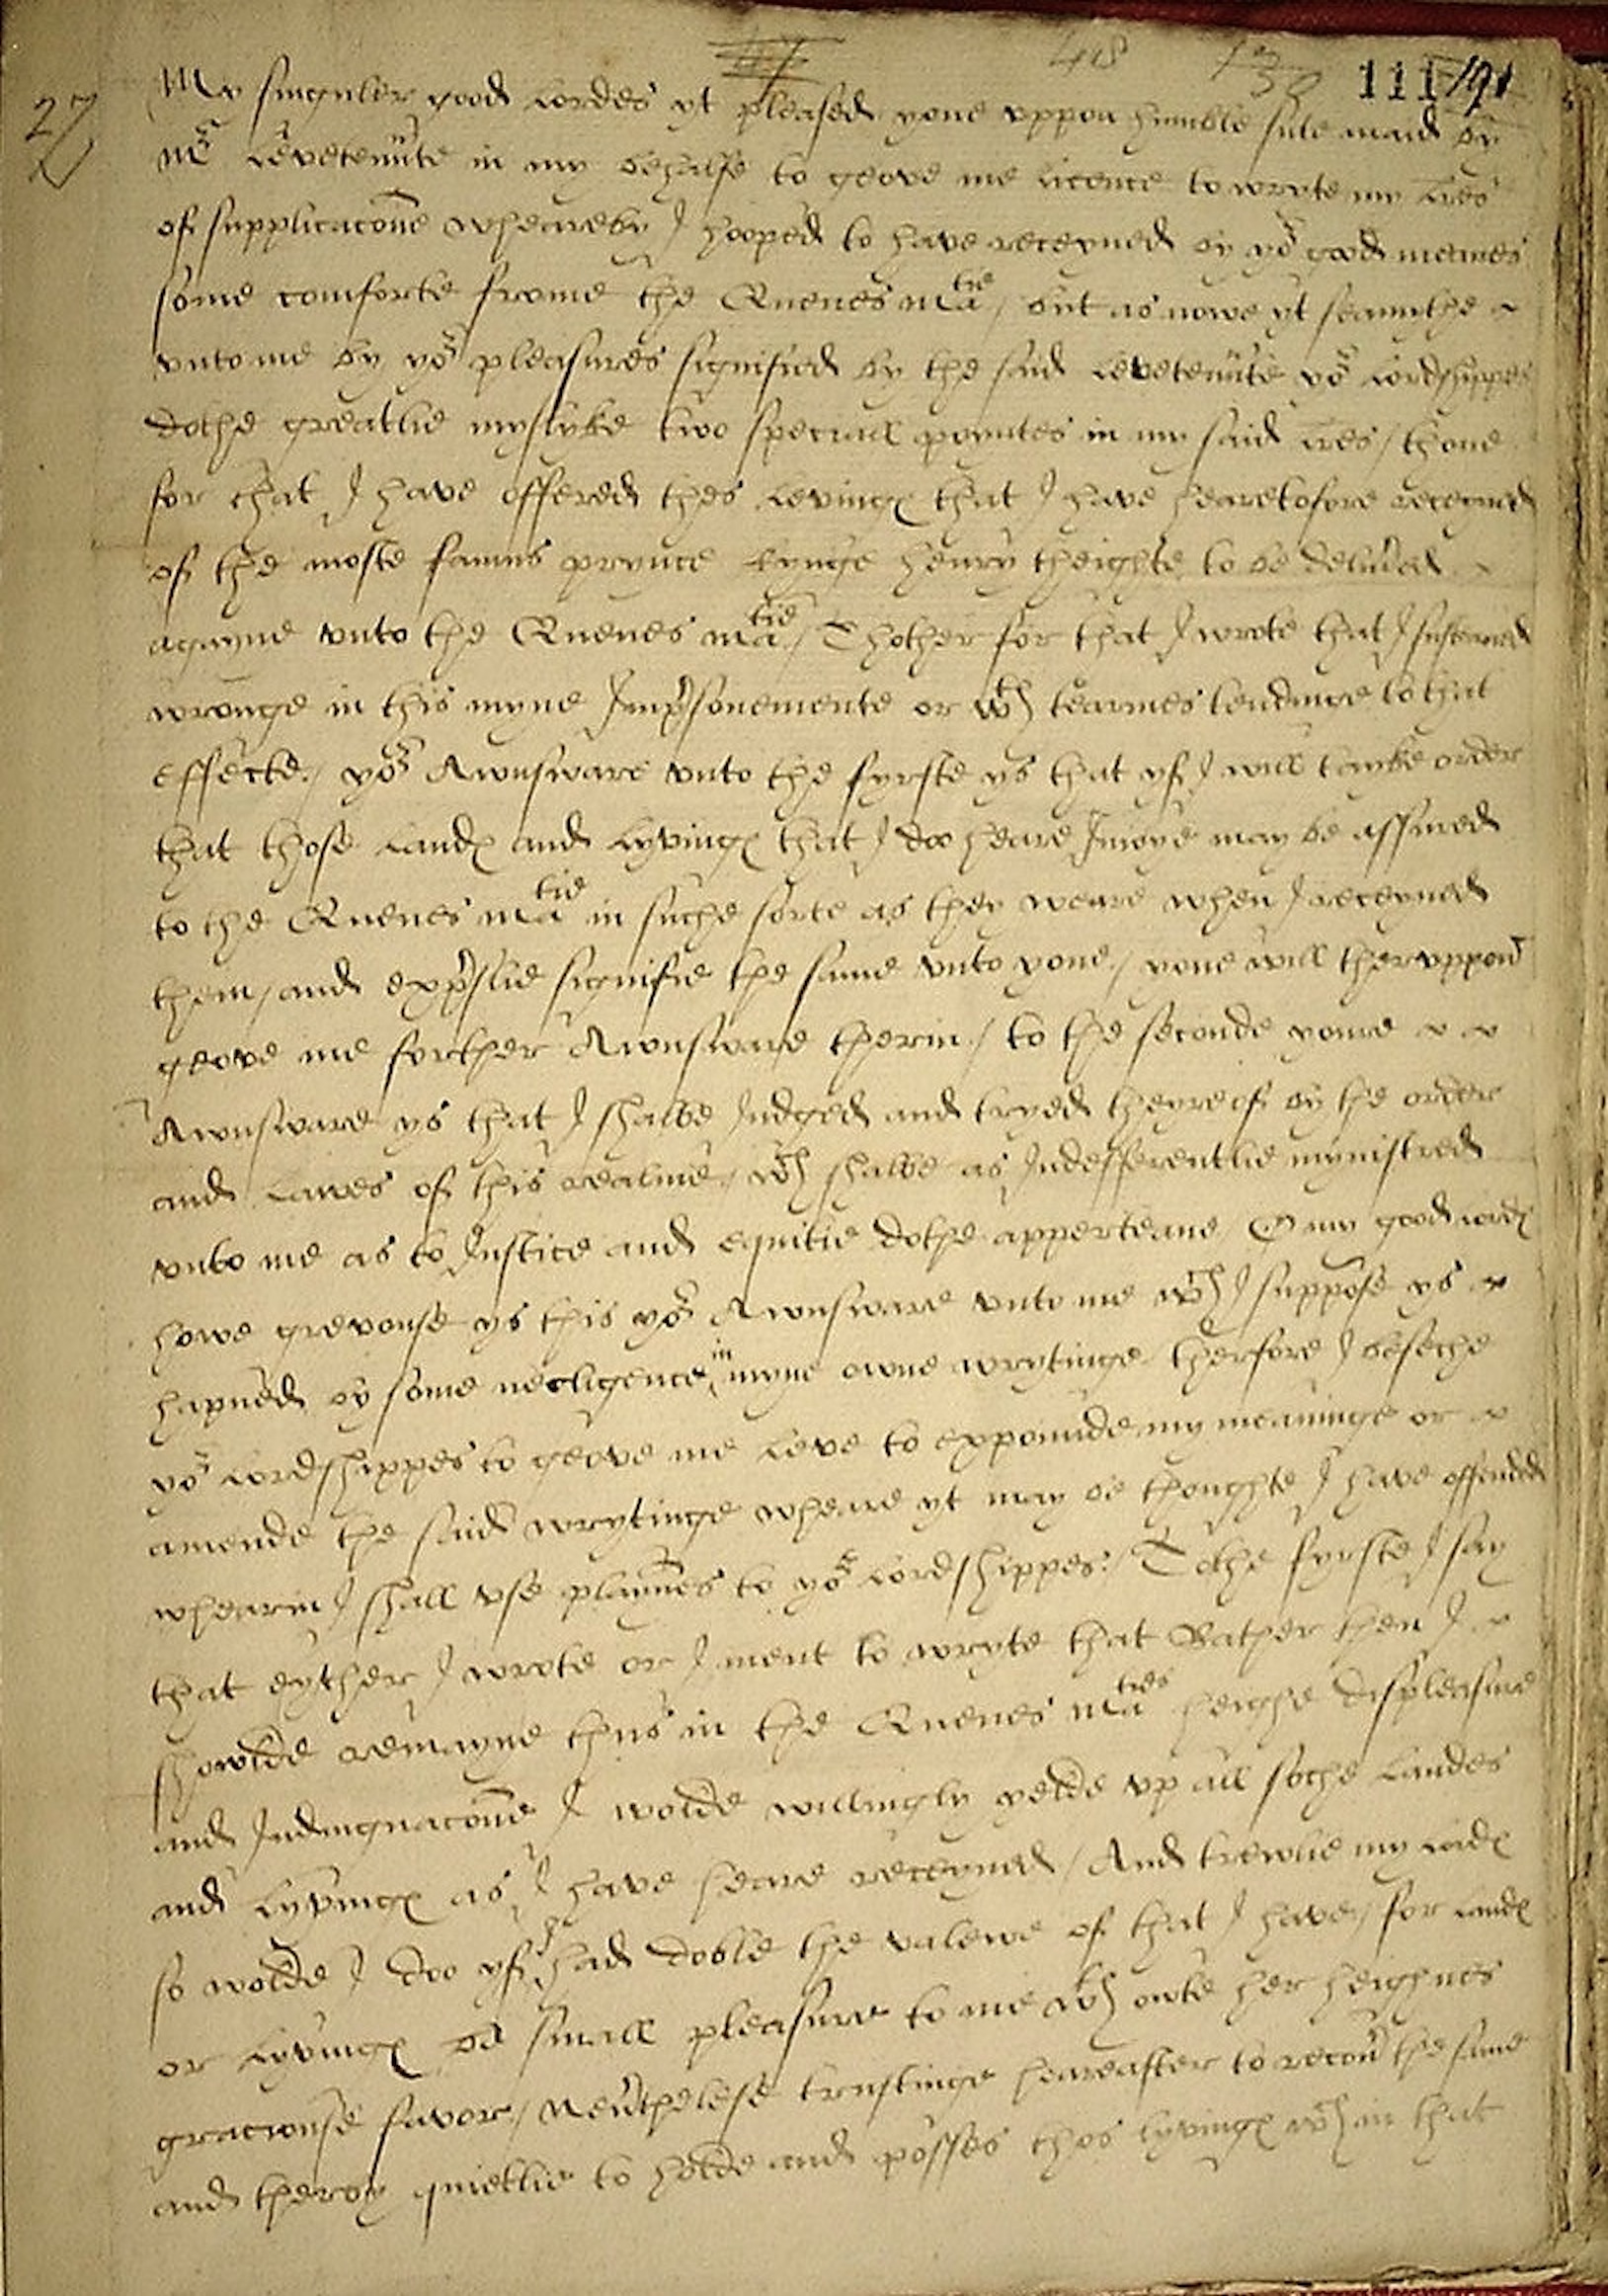 48 1330 111 191
27
My singuler good Lordes yt pleased youe uppon humble sute maid by
Mr Levetennte in my behalfe to geove me licence to wryte my lres
of supplicacone wheareby I hooped to have receyued by yor good meanes
some comforte frome the Quenes matie / but as nowe yt seamythe
vnto me by yor pleasures signified by the said Levetennte yor Lordshippes
dothe greatlie myslyke two speciall poyntes in my said lres / thone
for that I have offered thes Levinges that I have hearetofore receyued
of the moste famus prynce kynge henry theighte to be delived
agayne vnto the Quenes matie / Thother for that I wrote that I susteaned
wronge in this myne Imprsonemente or wth tearmes tendinge to that
effecte / yor Awnsware vnto the fyrste ys that yf I will tayke order
that those Landes and Lyvinges that I doo heare Inioye may be assured
to the Quenes matie in suche sorte as they weare when I receyued
them / and exprslie signifie the same vnto youe / youe will theruppon
geove me forther Awnsware therin / to the seconde youre
Awnsware ys that I shalbe Judged and tryed theyreof by the order
and Lawes of this realme / wch shalbe as Indefferentlie mynistred
vnto me as to Justice and equitie dothe apperteane O my good Lordes
howe grevouse ys this yor Awnsware vnto me wch I suppose ys
hapned by some necligence in myne owne wrytinge therfore I beseche
yor Lordshippes to geove me Leve to expounde my meaninge or
amende the said wrytinge wheare yt may be thoughte I have offended
whearin I shall vse playnnes to yor Lordshippes / To the fyrste I say
that eyther I wrote or I ment to wryte that Rather then I
showlde remayne thus in the Quenes maties heighe displeasure
and Indingnacone I wolde willingly yelde vp all soche Landes
and Lyvinges as I have heare receyued / And trewlie my Lordes
so wolde I doo yf I had doble the valewe of that I have / for Landes
or Lyvinges be small pleasure to me wth owte her heighnes
graciouse favor / Neverthelese trustinge heareafter to recov the same
and therby quietlie to holde and posses thes lyvinges wth in that